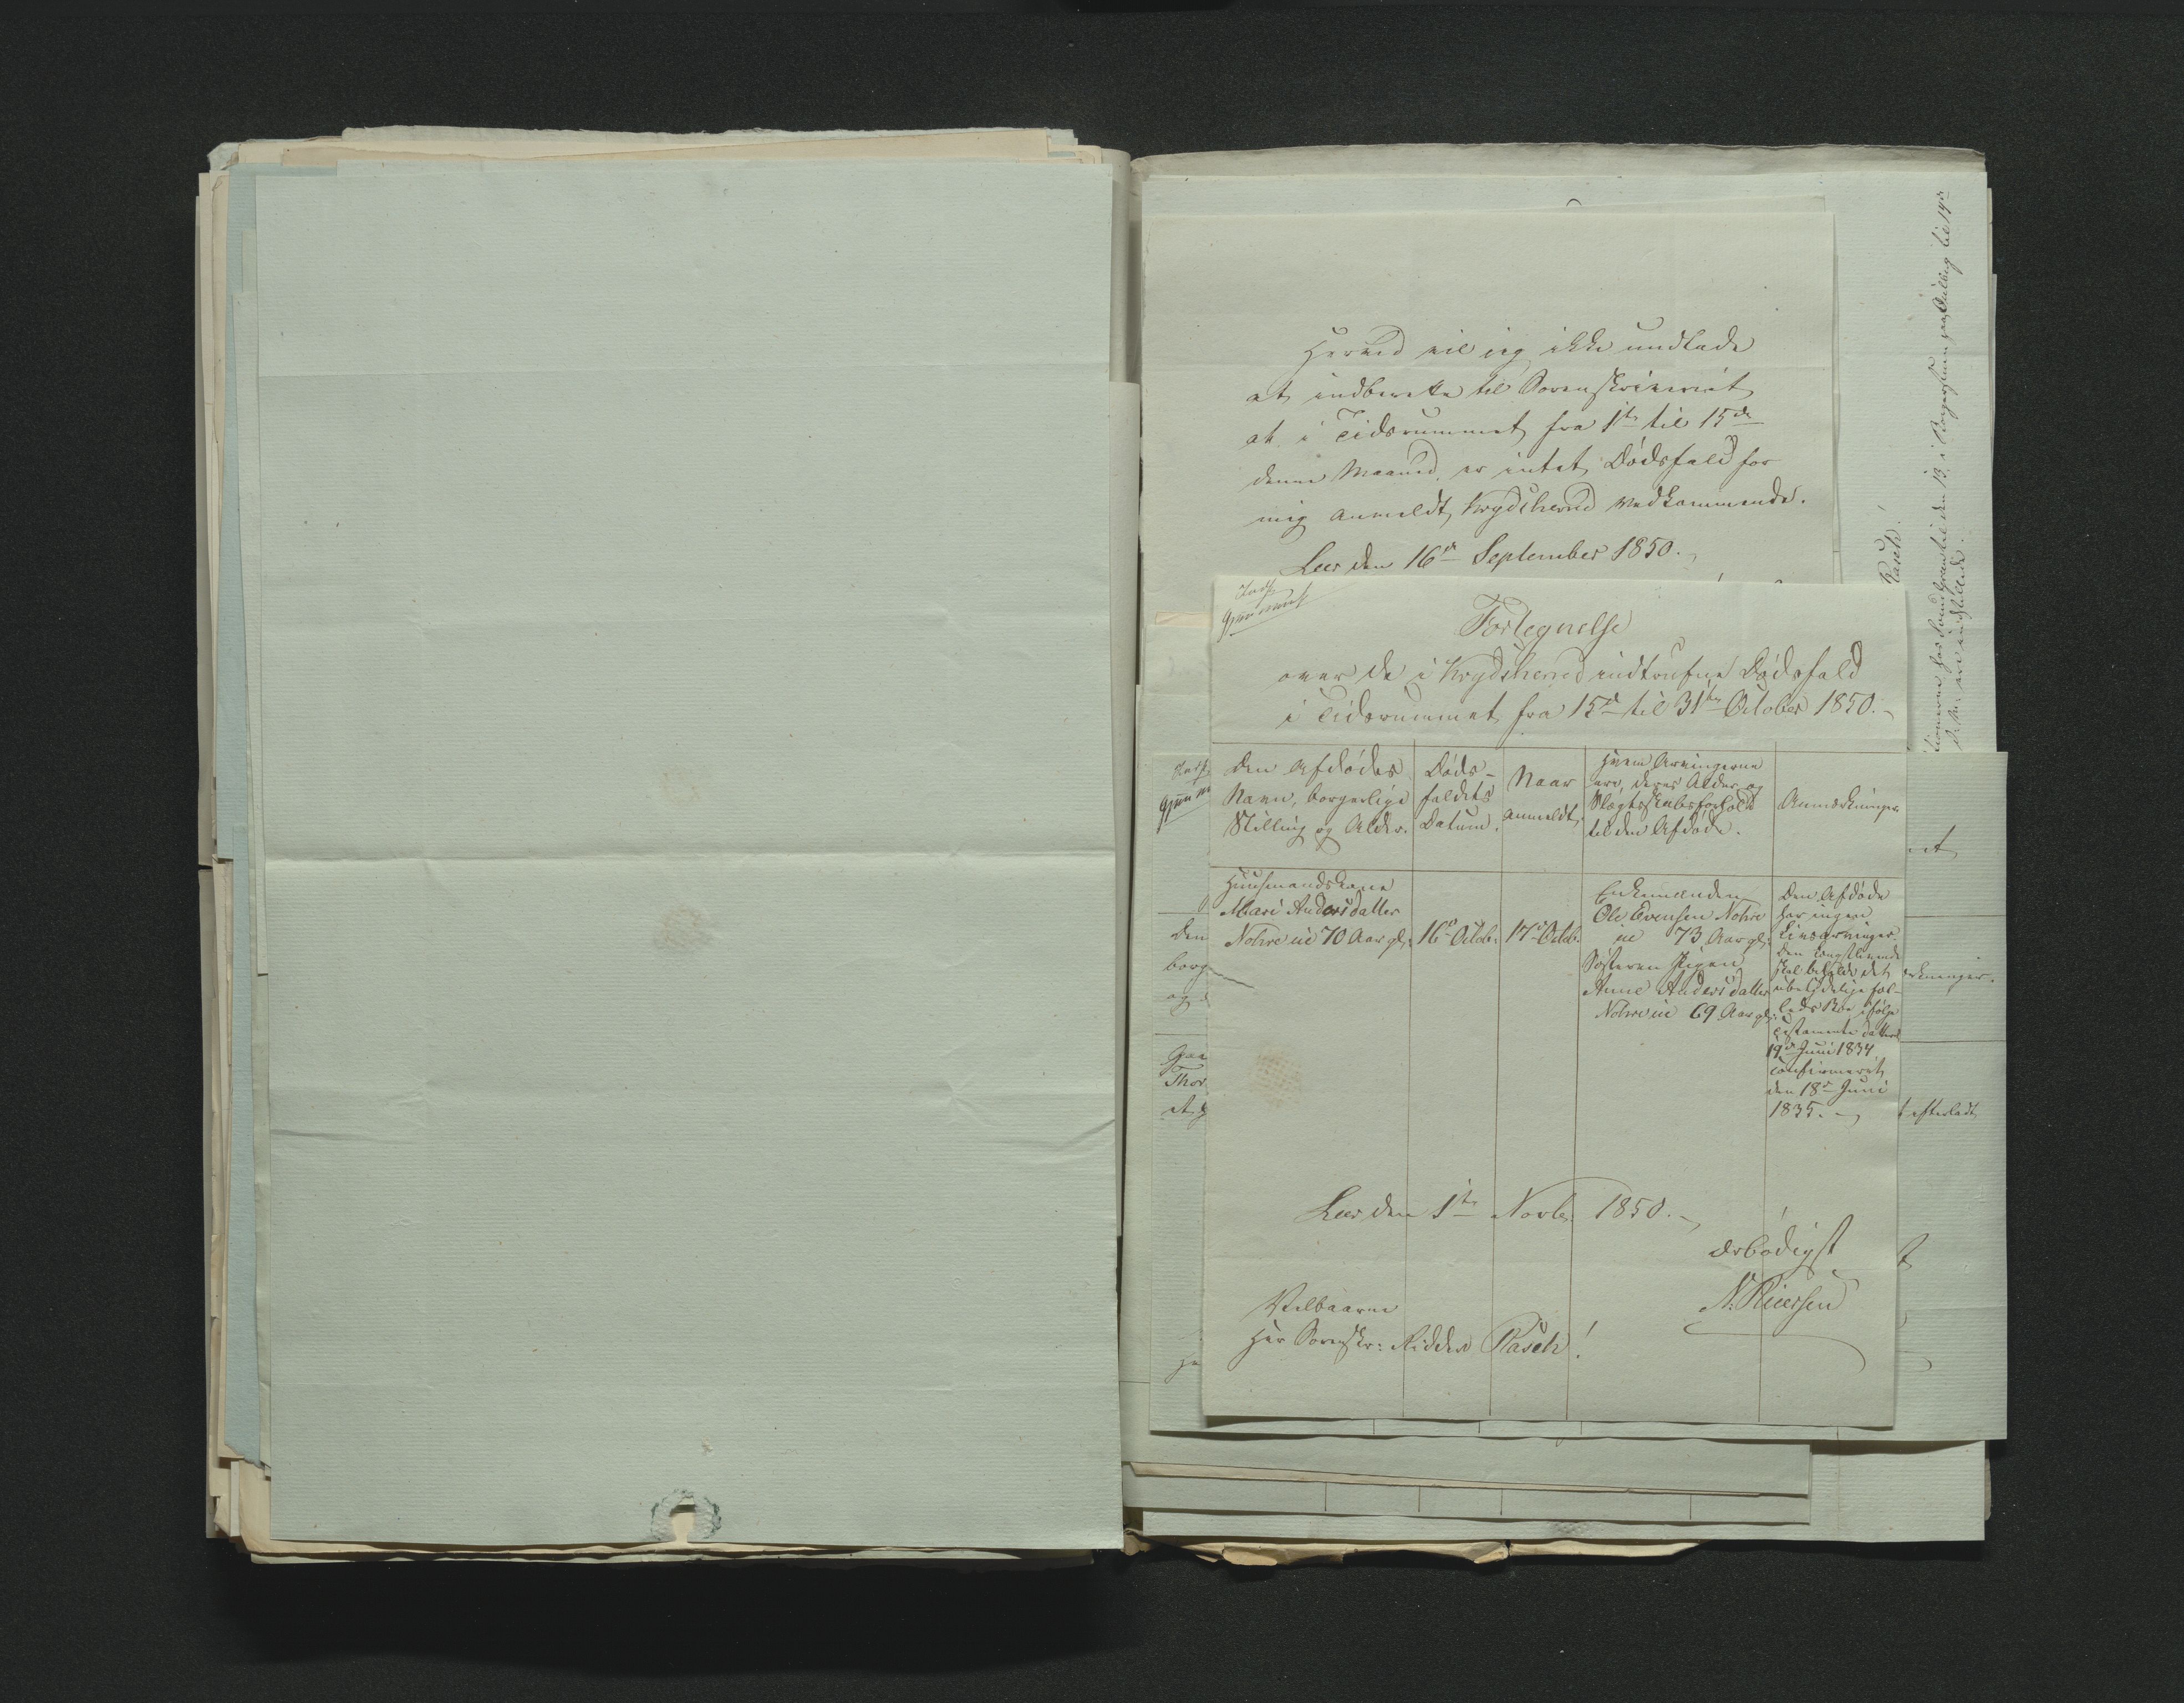 Herved vil jeg ikke undlade
at indberette til Sorenskriveriet,
at i Tidsrummet fra 1ste til 15de
denne Maaned, er intet Dødsfald for
mig anmeldt, Krydsherred vedkommende.
Leer den 16de September 1850.
Indf.
Fortegnelse
over de i Krydsherred indtrufne Dødsfald
i Tidsrummet fra 15de til 31te October 1850.
Den Afdødes
Navn, borgerlige
Stilling og Alder.
Døds-
faldets
Datum.
Naar
anmeldt.
Hvem Arvingerne
ere, deres Alder og
Slægtsskabsforhold
til den Afdøde.
Anmærkninger
Huusmandskone
Mari Andersdatter
Nohre eie 70 Aar gl:
16de Octobr
17de Octobr
Enkemanden
Ole Evensen Nohre
eie 73 Aar gl:
Søsteren Pigen
Anne Andersdatter
Nohre eie 69 Aar gl:
Den Afdøde
har ingen
Livsarvinger.
Den længstlevende
skal beholde det
ubetydelige Fæl-
leds Boe ifølge
Testamente dateret
19de Juni 1834
confirmeret
den 18de Juni
1835.
Leer den 1ste Novbr. 1850.
Ærbødigst
N. Ruersen
Velbaarne
Herr Sorenskr: Ridder Rasch!
Rasch!
Den
borg
og
Gaa
Thor
et
efterladt